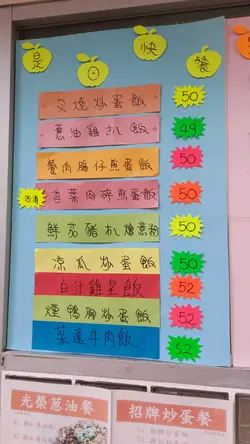 是日快餐
叉燒炒蛋飯 50
蔥油雞扒飯 49
餐肉腸仔煎蛋飯 50
沽清 香葉肉碎煎蛋飯 50
鮮茄豬扒燴意粉 50
涼瓜炒蛋飯 50
白汁雞皇飯 52
煙鴨胸炒蛋飯 52
菜遠牛肉飯 52
光榮蔥油餐
招牌炒蛋餐